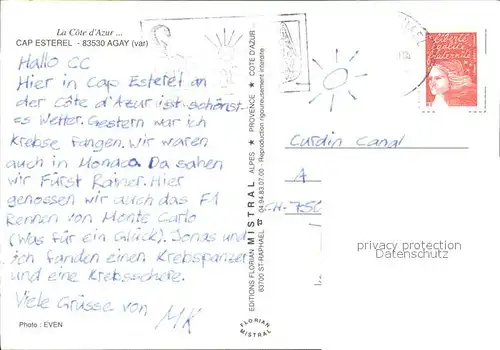 La Côte d'Azur ...
CAP ESTEREL - 83530 AGAY (var)
Hallo CC
Hier in Cap Esterel an
der Côte d'Azur ist schönst-
es Wetter. Gestern war ich
Krebse fangen. Wir waren
auch in Monaco. Da sahen
wir Fürst Rainer. Hier
genossen wir auch das F1
Rennen von Monte Carlo
(Was für ein Glück). Jonas und
ich fanden einen Krebspanzer
und eine Krebsschere.
Viele Grüsse von
MK
Photo : EVEN
EDITIONS FLORIAN MISTRAL ALPES ★ PROVENCE ★ COTE D'AZUR
83700 ST-RAPHAËL ☎ 04.94.83.07.00 - Reproduction rigoureusement interdite
FLORIAN
MISTRAL
liberté
égalité
fraternité
Curdin Canal
A
CH-750
privacy protection
Datenschutz